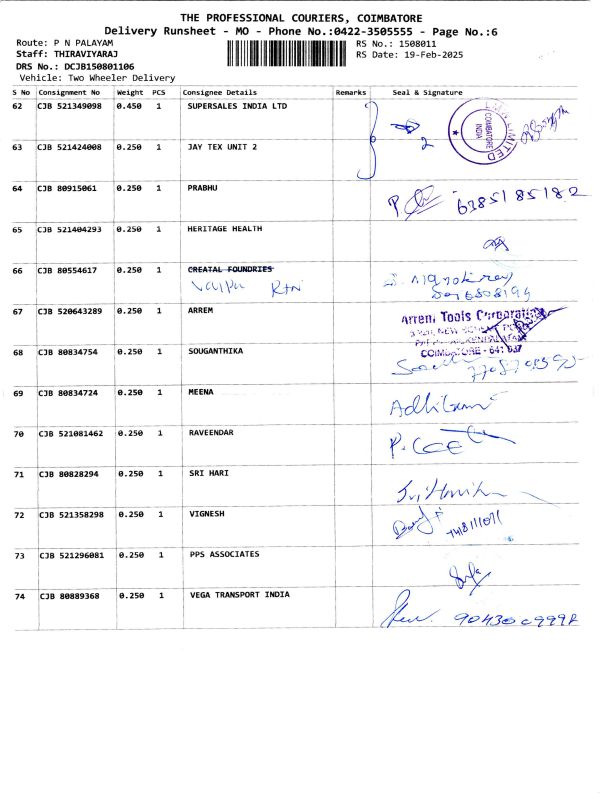 THE PROFESSIONAL COURIERS, COIMBATORE
Delivery Runsheet - MO - Phone No.:0422-3505555 - Page No.:6
Route: P N PALAYAM
RS No.: 1508011
Staff: THIRAVIYARAJ
RS Date: 19-Feb-2025
DRS No.: DCJB150801106
Vehicle: Two Wheeler Delivery
S No Consignment No Weight PCS Consignee Details Remarks Seal & Signature
62 CJB 521349098 0.450 1 SUPERSALES INDIA LTD
LIMITED
COIMBATORE
INDIA
2
63 CJB 521424008 0.250 1 JAY TEX UNIT 2
64 CJB 80915061 0.250 1 PRABHU
P. 6385185182
65 CJB 521404293 0.250 1 HERITAGE HEALTH
66 CJB 80554617 0.250 1 CREATAL FOUNDRIES
67 CJB 520643289 0.250 1 ARREM
Arrem Tools Corporation
COIMBATORE - 641 037
68 CJB 80834754 0.250 1 SOUGANTHIKA
69 CJB 80834724 0.250 1 MEENA
70 CJB 521081462 0.250 1 RAVEENDAR
71 CJB 80828294 0.250 1 SRI HARI
72 CJB 521358298 0.250 1 VIGNESH
73 CJB 521296081 0.250 1 PPS ASSOCIATES
74 CJB 80889368 0.250 1 VEGA TRANSPORT INDIA